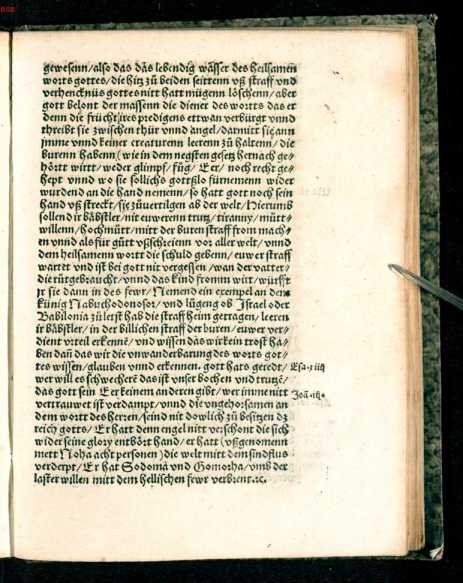 gewesenn/also das das lebendig wasser des heilsamen
worts gottes/die hitz zů beiden seittenn vß straff vnd
verhencknüs gottes nitt hatt mügenn löschenn/aber
gott belont der massenn die diener des wortts das er
denn die früchtires predigens ettwan verbürgt vnnd
threibt sie zwischen thür vnnd angel/darmitt si ann
imme vnnd keiner creaturenn leerenn zů haltenn/die
burenn habenn(wie in dem negsten gesetz hernach ge⸗
hörtt wirtt/weder glimpf/fůg/Eer/noch recht ge⸗
hept vnnd wo sie sollichs gottßlo fürnemenn wider
wurdend an die hand nemenn/so hatt gott noch sein
hand vß streckt/sie zůuertilgen ab der welt/Hierumb
sollend ir bäbstler/nit euwerenn trutz/tiranny/mütt⸗
willenn/hochmütt/mitt der buren straff from mach⸗
en vnnd als für gůtt vßschreienn vor aller welt/vnnd
dem heilsamenn wortt die schuld gebenn/euwer straff
wartet vnd ist bei gott nit vergessen/wan der vatter
die růt gebraucht/vnnd das kind fromm wirt/würfft
er sie dann in des fewr/Nemend ein exempel an dem
künig Nabuchodonosor/vnnd lügeng ob Israel oder
Babilonia zů lerst hab die straff heim getragen/leeren
ir bäbstler/in der billichen straff der buren/euwer ver⸗
dient vrteil erkenne/vnd wissen das wir kein trost ha⸗
ben dañ das wir die vnwanderbarung des worts got⸗
tes wissen/glauben vnnd erkennen. gott hats geredt/
Esa. viij
wer will es schwecherē das ist vnser bochen vnd trutze/
das gott sein Eer keinem anderen gibt/wer imme nitt
Joā. iij.
vertrauwet ist verdampt/vnnd die vngehorsamen an
dem wort des herren/seind nit dowlich zů besitzen dz
reich gotts/Er hatt denn engel nitt verschont die sich
wider seine glory entbört hand/er hatt (vßgenomenn
mett Noha acht personen)die welt mitt dem sindflus
verderpt/Er hat Sodoma vnd Gomorha/vmb der
laster willen mitt dem hellischen fewr verbrent.ꝛc.